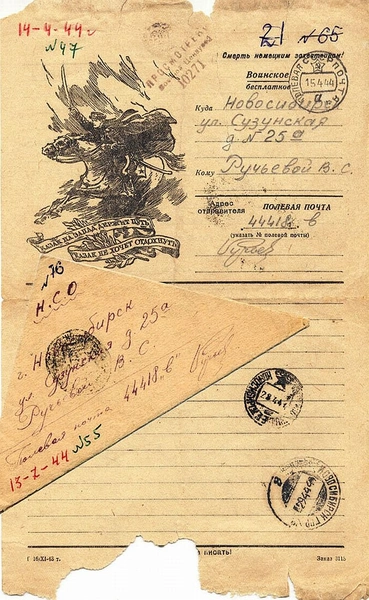 14-4-44 г
№47
21 №65
Смерть немецким захватчикам!
Воинское
бесплатное
ПРОСМОТРЕНО
10271
ПОЛЕВАЯ ПОЧТА
15.4.44
Куда Новосибирск
ул. Сузунская
д № 25а
Кому Ручьевой В. С.
Адрес
отправителя
ПОЛЕВАЯ ПОЧТА
44418 в
(указать № полевой почты)
КАЗАК НА ЗАПАД ДЕРЖИТ ПУТЬ,
КАЗАК НЕ ХОЧЕТ ОТДОХНУТЬ
№76
Н.С.О
г. Новосибирск
ул Сузунская д. 25а
Ручьевой В. С.
Полевая почта 44418 „В"
13-Z-44 №55
НОВОСИБИРСК
ПИСАТЬ!
Заказ 3115